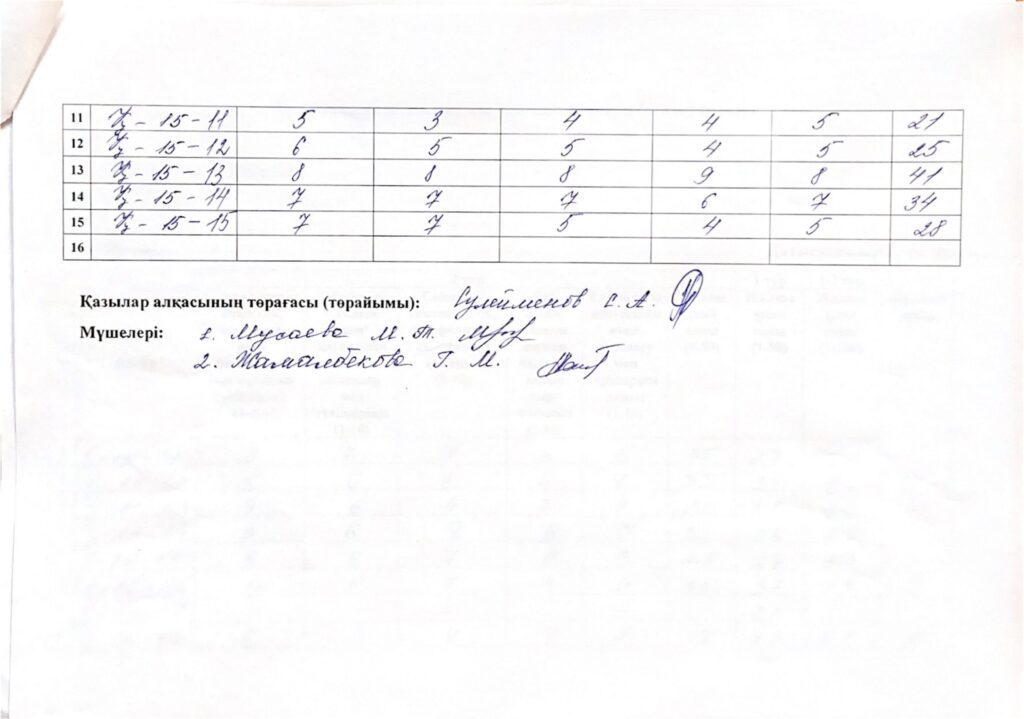 11 Қ - 15 - 11 5 3 4 4 5 21
12 Қ - 15 - 12 6 5 5 4 5 25
13 Қ - 15 - 13 8 8 8 9 8 41
14 Қ - 15 - 14 7 7 7 6 7 34
15 Қ - 15 - 15 7 7 5 4 5 28
16
Қазылар алқасының төрағасы (төрайымы): Сулейменов С. А.
Мүшелері: 1. Мусаева М. Т.
2. Жамалбекова Г. М.